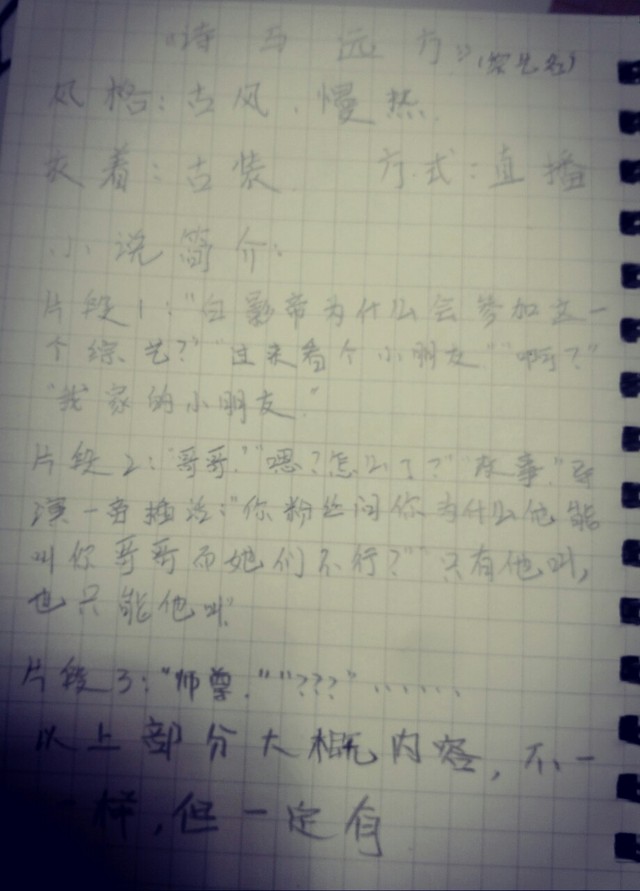 《诗与远方》(综艺名)
风格：古风、慢热
衣着：古装 方式：直播
小说简介：
片段1："白影帝为什么会参加这一
个综艺？""过来看个小朋友""啊？"
"我家的小朋友."
片段2："哥哥.""嗯？怎么了？""没事."导
演一旁插话："你粉丝问你为什么他能
叫你哥哥而她们不行？""只有他叫,
也只能他叫."
片段3："师尊.""???"……
以上部分大概内容，不一
样，但一定有